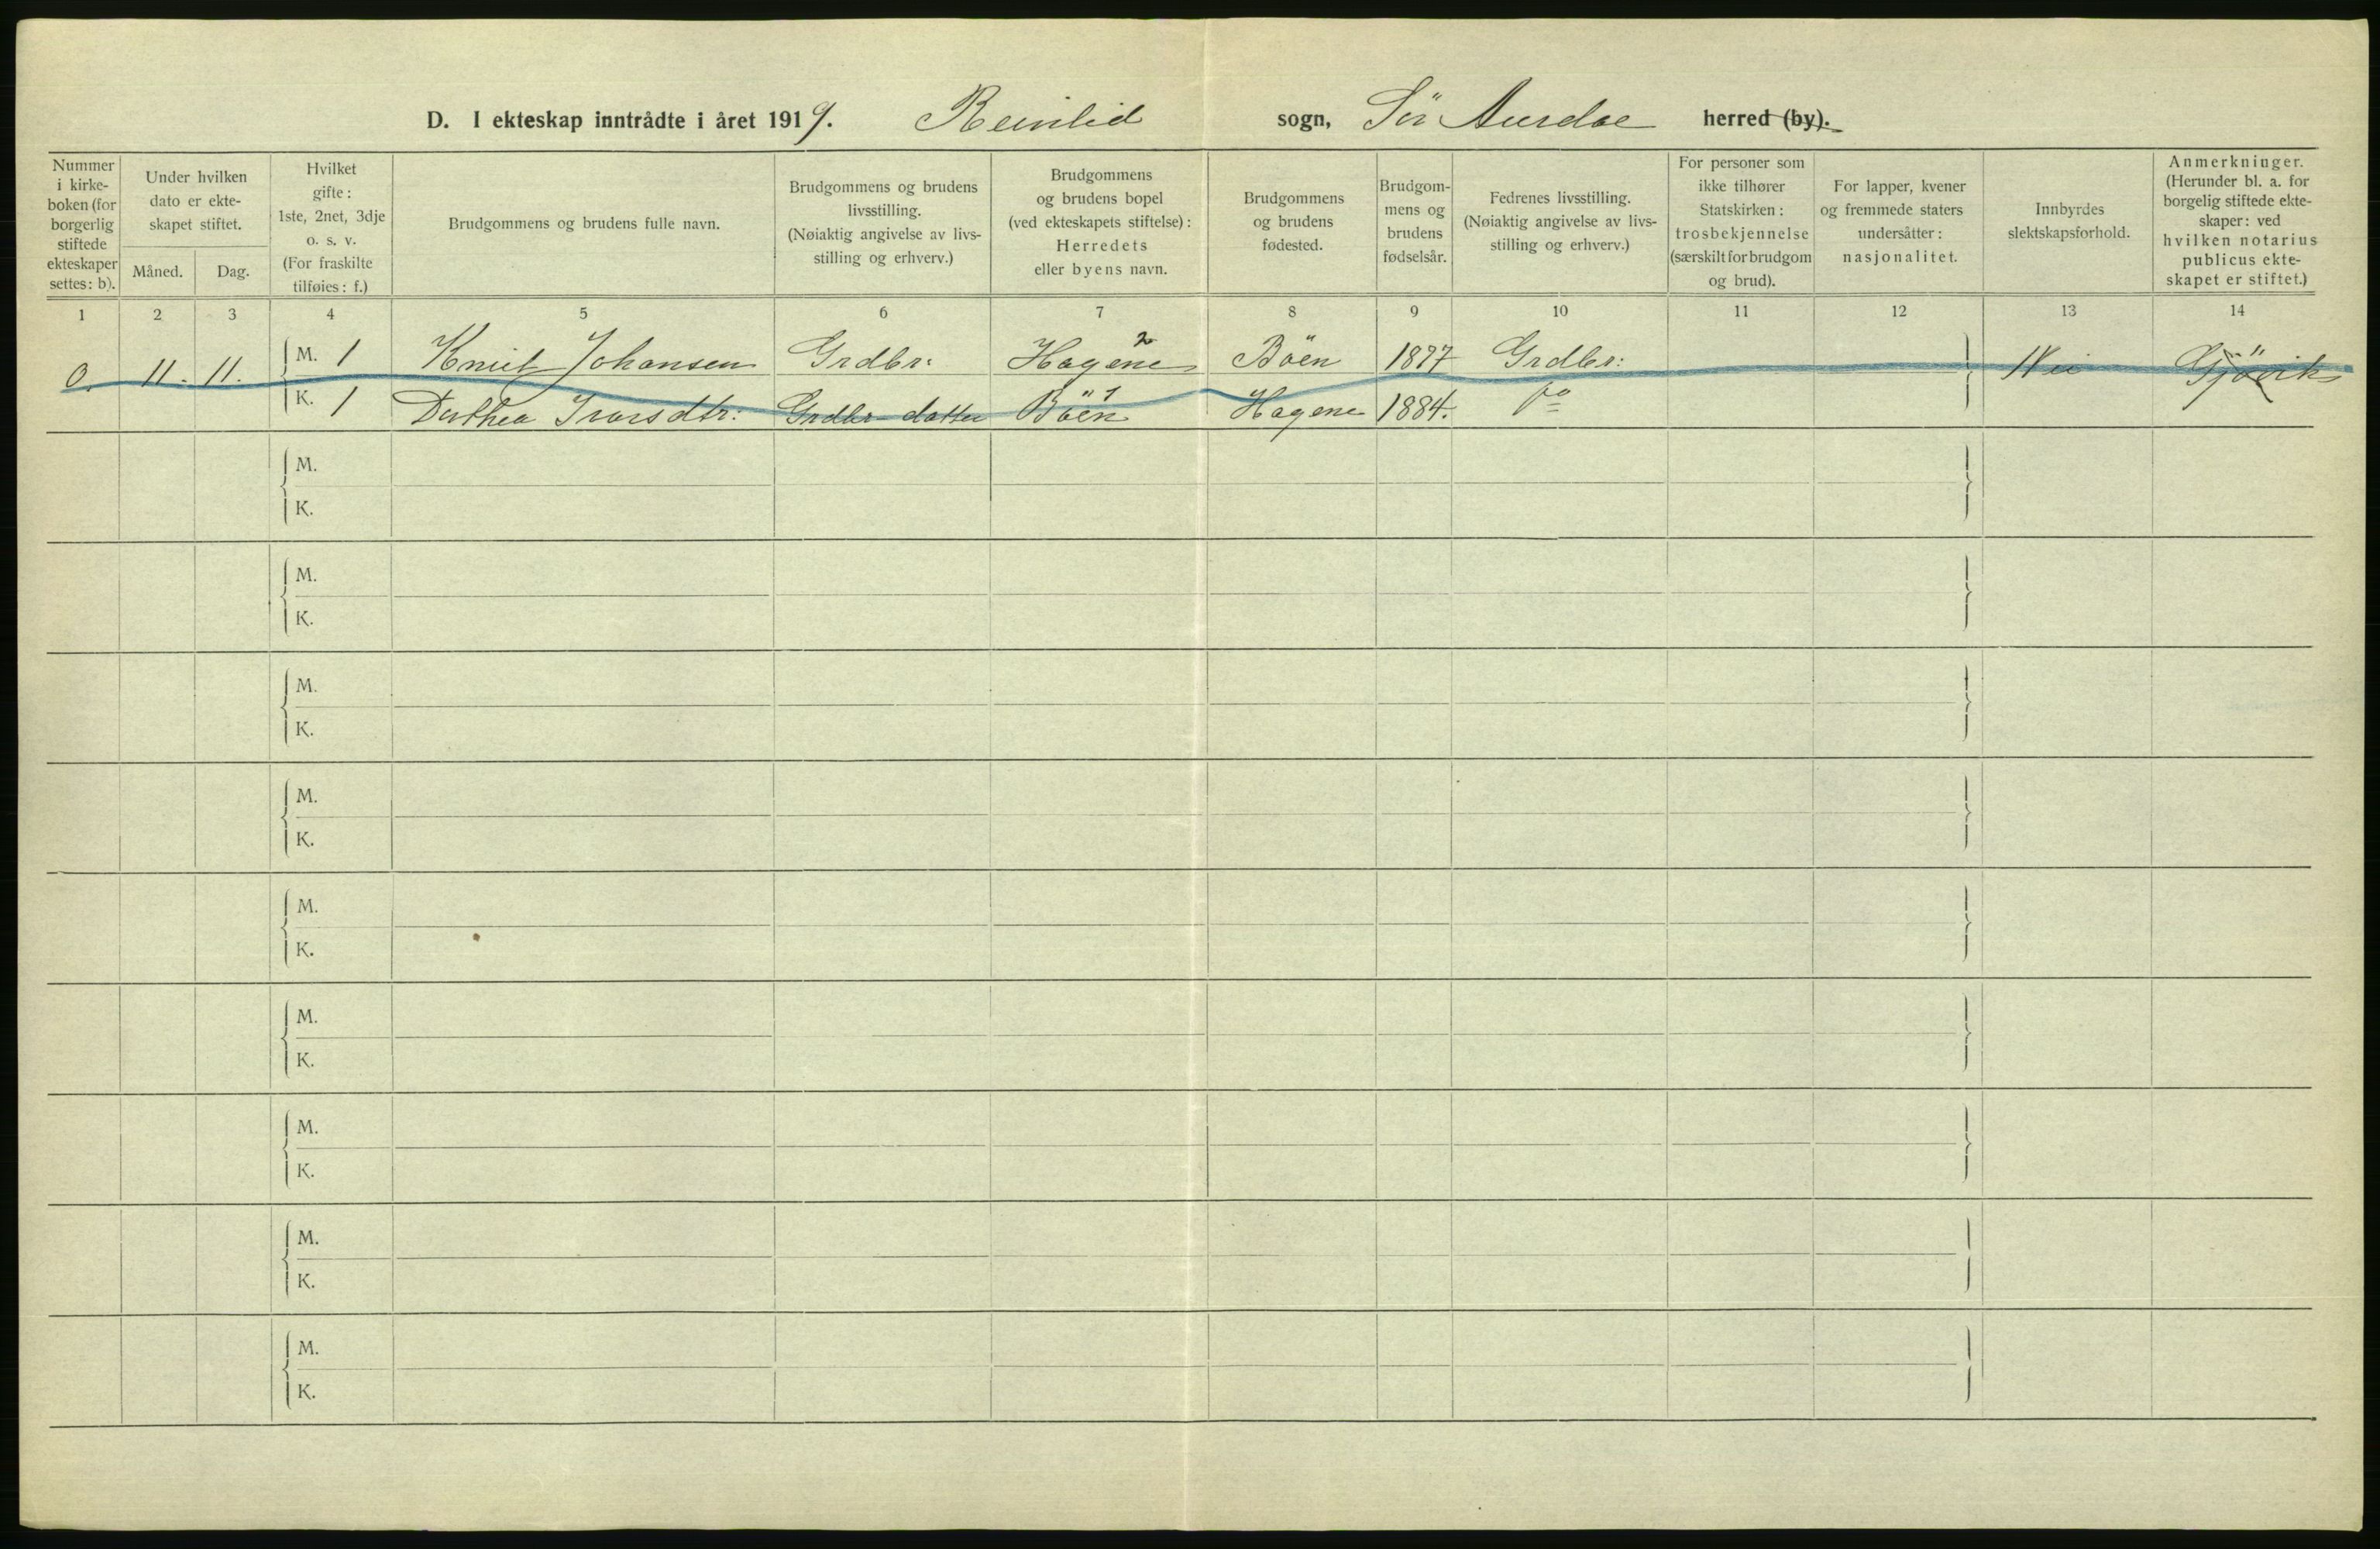 D. I ekteskap inntrådte i året 1919. Reinlid sogn, Sör Aurdal herred (by).
Nummer i kirke-boken (for borgerlig stiftede ekteskaper settes: b).
Under hvilken dato er ekte-skapet stiftet.
Måned.
Dag.
Hvilket gifte: 1ste, 2net, 3dje o. s. v. (For fraskilte tilføies: f.)
Brudgommens og brudens fulle navn.
Brudgommens og brudens livsstilling. (Nøiaktig angivelse av livs-stilling og erhverv.)
Brudgommens og brudens bopel (ved ekteskapets stiftelse): Herredets eller byens navn.
Brudgommens og brudens fødested.
Brudgom-mens og brudens fødselsår.
Fedrenes livsstilling. (Nøiaktig angivelse av livs-stilling og erhverv.)
For personer som ikke tilhører Statskirken: trosbekjennelse (særskilt for brudgom og brud).
For lapper, kvener og fremmede staters undersåtter: nasjonalitet.
Innbyrdes slektskapsforhold.
Anmerkninger. (Herunder bl. a. for borgelig stiftede ekte-skaper: ved hvilken notarius publicus ekte-skapet er stiftet.)
1 2 3 4 5 6 7 8 9 10 11 12 13 14
0. 11. 11. M. 1 Knut Johansen Grdbr. Hagene 2 Böen 1877 Grdbr: Nei Gjövik
K. 1 Dorthea Ivarsdtr: Grdbr datter Böen 1 Hagene 1884.
M.
K.
M.
K.
M.
K.
M.
K.
M.
K.
M.
K.
M.
K.
M.
K.
M.
K.